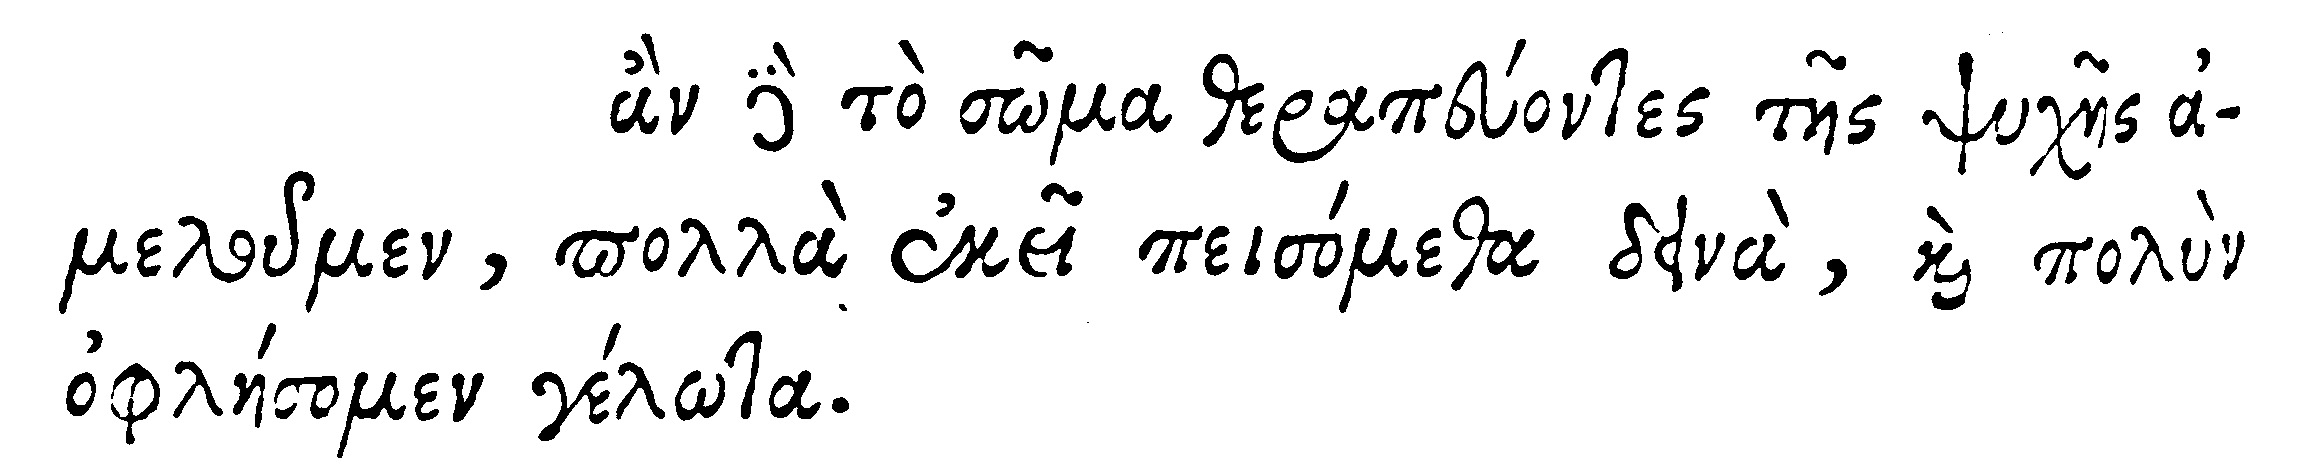 ἂν δὲ τὸ σῶμα θεραπεύοντες τῆς ψυχῆς ἀ-
μελοῦμεν, πολλὰ ἐκεῖ πεισόμεθα δεινὰ, καὶ πολὺν
ὀφλήσομεν γέλωτα.